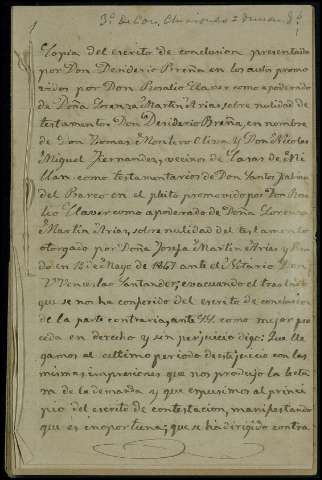 1
Copia del escrito de conclusion presentado
por Don Desiderio Breña en los autos promo
vidos por Don Rosalio Claver como apoderado
de Doña Lorenza Martin Arias, sobre nulidad de
testamento = Don Desiderio Breña, en nombre
de Don Tomas Montero Oliva y Don Nicolas
Miguel Hernandez, vecinos de Casas de Mi
llan como testamentarios de Don Santos
del Barco en el pleito promovido por Don Rosa
lio Claver como apoderado de Doña Lorenza
Martin Arias, sobre nulidad del testamento
otorgado por Doña Josefa Martin Arias y
do en 13 de Mayo de 1867 ante el Notario Don
Venancio Santander, evacuando el traslado
que se nos ha conferido del escrito de conclusion
de la parte contraria, ante V.S. como mejor pro
ceda en derecho y sin perjuicio digo: Que lle
gamos al ultimo periodo de este juicio con las
mismas impresiones que nos produjo la lectu
ra de la demanda y que expusimos al princi
pio del escrito de contestacion, manifestando
que es inoportuna; que se ha dirigido contra